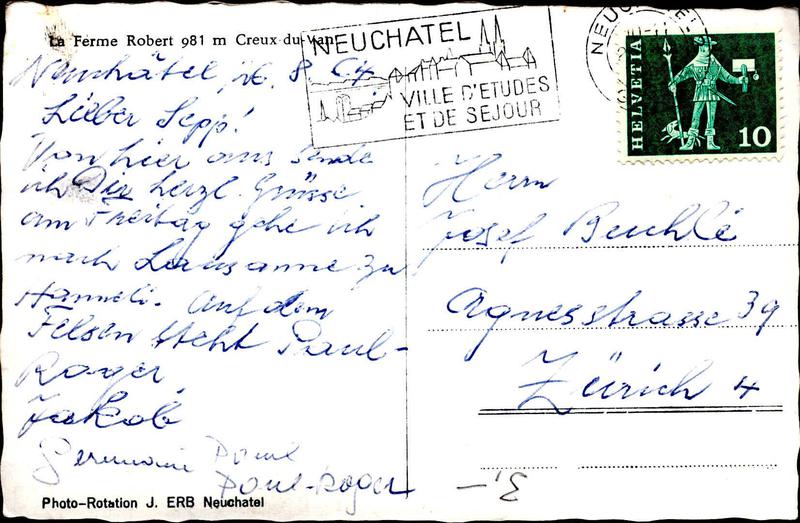 La Ferme Robert 981 m Creux-du-Van
NEUCHATEL
VILLE D'ETUDES
ET DE SEJOUR
NEUCHATEL
HELVETIA
10
Neuchâtel, 8. 64
Lieber Sepp!
Von hier aus sende
ich Dir herzl. Grüsse
am Freitag gehe ich
nach Lausanne zu
Hanneli. Auf dem
Felsen steht Paul-
Roger,
Jakob
Germaine Paul
Paul-Roger
Photo-Rotation J. ERB Neuchatel
Herrn
Josef Beuchlé
Agnesstrasse 39
Zürich 4